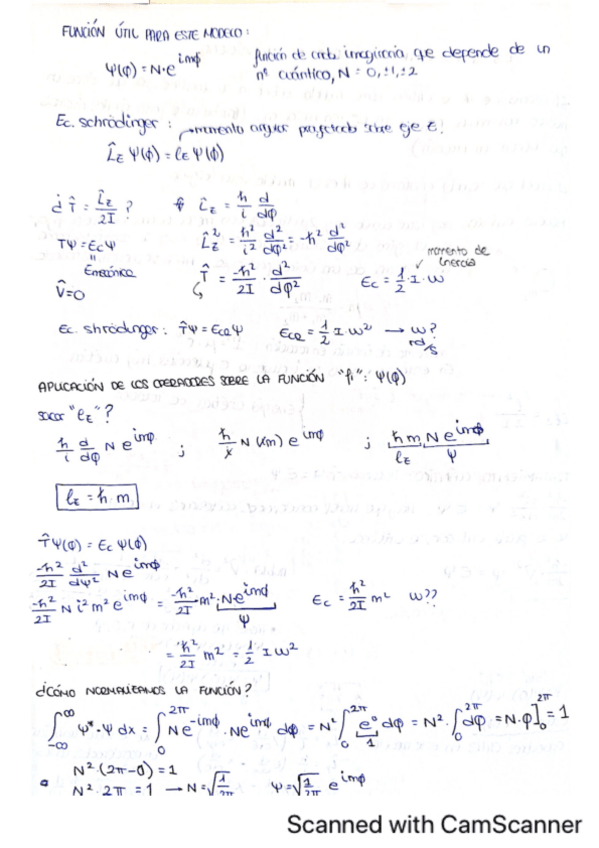 FUNCIÓN ÚTIL PARA ESTE MODELO:
Ψ(ϕ) = N·e^{imϕ} función de onda imaginaria que depende de un
nº cuántico, N = 0, ±1, ±2
Ec. schrödinger: → momento angular proyectado sobre eje z.
L̂_z Ψ(ϕ) = l_z Ψ(ϕ)
¿ T̂ = L̂_z/2I ? L̂_z = ħ/i d/dϕ
L̂_z² = ħ²/i² d²/dϕ² = -ħ² d²/dϕ²
TΨ = E_c Ψ
V̂ = 0
T̂ = -ħ²/2I · d²/dϕ²
momento de inercia
E_c = 1/2 · I · w
Ec. shrödinger: T̂Ψ = E_{ce}Ψ E_{ce} = 1/2 I w² → w? rd/s
APLICACIÓN DE LOS OPERADORES SOBRE LA FUNCIÓN "fi": Ψ(ϕ)
sacar "l_z"?
ħ/i d/dϕ N e^{imϕ} ; ħ/i N (im) e^{imϕ} ; ħm N e^{imϕ}
l_z Ψ
l_z = ħ·m
T̂Ψ(ϕ) = E_c Ψ(ϕ)
-ħ²/2I d²/dϕ² N e^{imϕ}
-ħ²/2I N i² m² e^{imϕ} = -ħ²/2I · m² · N e^{imϕ} E_c = ħ²/2I m² w??
Ψ
= ħ²/2I m² = 1/2 I w²
¿CÓMO NORMALIZAMOS LA FUNCIÓN?
∫_{-∞}^{∞} Ψ*·Ψ dx = ∫_0^{2π} N e^{-imϕ} · N e^{imϕ} dϕ = N² ∫_0^{2π} e⁰ dϕ = N² · ∫_0^{2π} dϕ = N·ϕ]_0^{2π} = 1
1
N²·(2π-0) = 1
N²·2π = 1 → N = √(1/2π) Ψ = √(1/2π) e^{imϕ}
Scanned with CamScanner